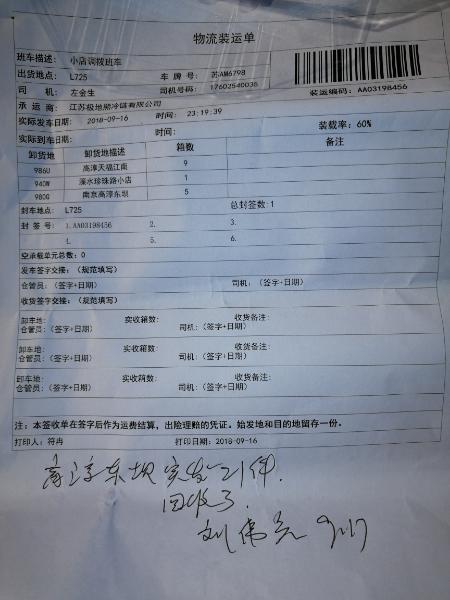 物流装运单
班车描述: 小店调拨班车
出货地点: L725 车 牌 号: 苏AM6798
司 机: 左金生 司机号码: 17602540035 装运编码: AA03198456
承 运 商: 江苏极地熊冷链有限公司
实际发车日期: 2018-09-16 时间: 23:19:39 装载率: 60%
实际到车日期: 时间:
卸货地 卸货地描述 箱数 备注
986U 高淳天福江南 9
940W 溧水珍珠路小店 1
980G 南京高淳东坝 5
封车地点: L725 总封签数:1
封 签 号: 1.AA03198456 2. 3.
4. 5. 6.
空承载单元总数: 0
发车签字交接: (规范填写)
仓管员: (签字+日期) 司机: (签字+日期)
收货签字交接: (规范填写)
卸车地: 实收箱数: 收货备注:
仓管员: (签字+日期) 司机: (签字+日期)
卸车地: 实收箱数: 收货备注:
仓管员: (签字+日期) 司机: (签字+日期)
卸车地: 实收箱数: 收货备注:
仓管员: (签字+日期) 司机: (签字+日期)
注: 本签收单在签字后作为运费结算, 出险理赔的凭证。始发地和目的地留存一份。
打印人: 符冉 打印日期: 2018-09-16
高淳东坝 实发 21件.
回收了.
刘伟 9.17